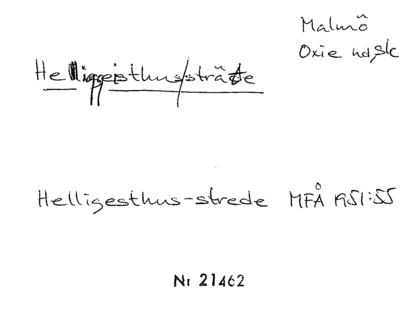 Malmö
Oxie hd, Sk
Helliggeisthus/sträde
Helligesthus-strede MFÅ 1951:55
Nr 21462